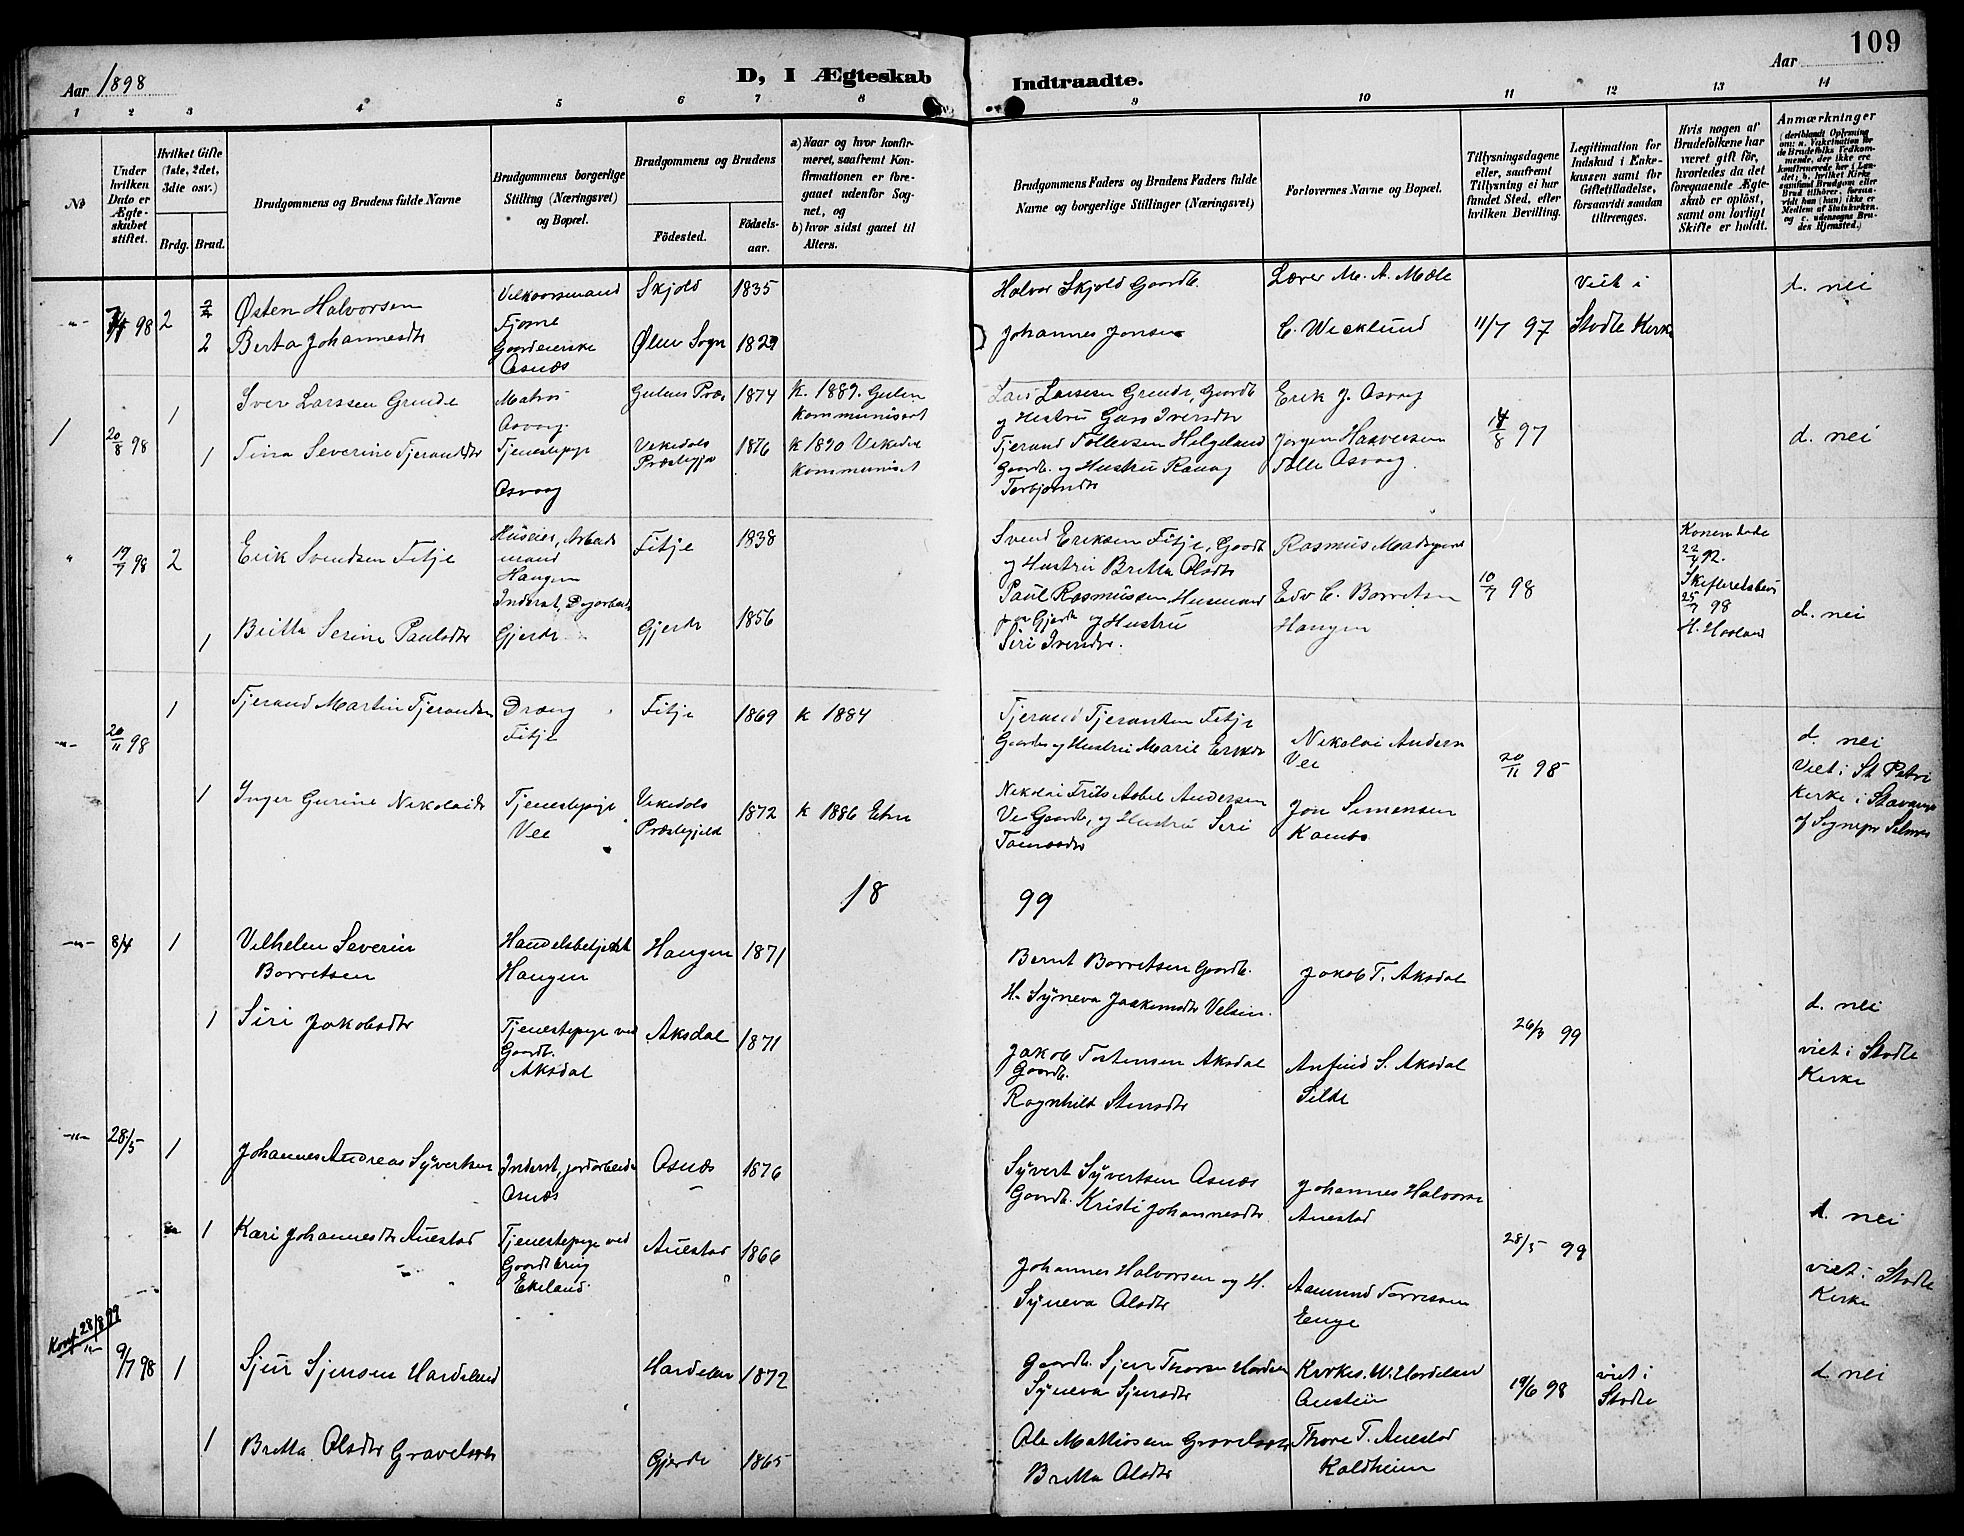 109
Aar 1898
D, I Ægteskab Indtraadte.
Aar
1 2 3 4 5 6 7 8 9 10 11 12 13 14
No
Under hvilken Dato er Ægteskabet stiftet.
Hvilket Gifte (1ste, 2det, 3die osv.)
Brdg. Brud.
Brudgommens og Brudens fulde Navne
Brudgommens borgerlige Stilling (Næringsvei) og Bopæl.
Brudgommens og Brudens
Födested. Födselsaar.
a) Naar og hvor konfirmeret, saafremt Konfirmationen er foregaaet udenfor Sognet, og
b) hvor sidst gaaet til Alters.
Brudgommens Faders og Brudens Faders fulde Navne og borgerlige Stillinger (Næringsvei)
Forlovernes Navne og Bopæl.
Tillysningsdagene eller, saafremt Tillysning ei har fundet Sted, efter hvilken Bevilling.
Legitimation for Indskud i Enkekassen samt for Giftetilladelse, forsaavidt saadan tiltrænges.
Hvis nogen af Brudefolkene har været gift för, hvorledes da det foregaaende Ægteskab er oplöst, samt om lovligt Skifte er holdt.
Anmærkninger
98 2 Østen Halvorsen Skjold 1835 Halvor Skjold Gaardb. Læver M. A. Mæle Viet i d. nei
2 Berta Johannesdtr Gaardeierske Asnæs Ølen Sogn 1829 Johannes Jonsen C. Wicklund 11/7 97 Stodle Kirk
1 20/8 98 1 Iver Larssen Grinde Matros Asvaag Gulens Præs 1874 K. 1889. Gulen Kommuniseret
Lars Larsen Grinde, Gaardb og Hustru Iversdtr Erik J. Asvaag
1 Tina Severine Tjerandsdtr Tjenestepige Asvaag Vikedals Præstegje 1876 K 1890 Vikedal Kommuniset
Tjerand Tollevsen Helgeland Gaardb. og Hustru Ranvag Torbjørnsdtr Jørgen Tolle Asvaag. 14/8 97 d. nei
" 17/7 98 2 Erik Svendsen Fitje Huseier, Arbeidsmand Haugen Fitje 1838
Svend Eriksen Fitje, Gaardb og Hustru Britta Olsdtr Rasmus Konen døde 22/4 92.
1 Britta Serine Paulsdtr Inderst, Gjerde Gjerde 1856
Paul Rasmussen, Husmand paa Gjerde og Hustru Siri Edv C. Borretsen Haugen 10/7 98 Skifteretsbevis 25/7 98 d. nei
-"- 20/11 98 1 Tjerand Martin Tjerandsen Dræng Fitje Fitje 1869 K 1884
Tjerand Tjerandsen Fitje Gaardb og Hustru Marie Eriksdtr Nikolai Andersn Vee 20/11 98
d. nei
Viet i St Petri Kirke i Stavanger af Sognepr
1 Inger Gurine Nikolaidtr Tjenestepige Vee Vikedals Præstegjeld 1872 K 1886 Etne
Nikolai Frits Abel Andersen Ve Gaardb, og Hustru Siri Jon Simonsen
18 99
-"- 8/4 1 Vilhelm Severin Borretsen Handelsbetjent Haugen Haugen 1871
Bernt Borretsen Gaardb. H. Syneva Jakob T. Aksdal
1 Siri Jakobsdtr Tjenestepige ved Gaardb. Aksdal Aksdal 1871
Jakob Tostensen Aksdal Gaardb. Ragnhild Stensdtr Anfind S. Aksdal 26/3 99 d. nei
viet i Stodle Kirke
-"- 28/5 1 Johannes Andreas Syvertsen Inderst, jordarbeider Asnæs Asnæs 1876
Syvert Syvertsen Asnæs Gaardb. Kristi Johannesdtr. Johannes Halvorsn Auestad
1 Kari Johannesdtr Auestad Tjenestepige ved Gaardbrug Ekeland. Auestad 1866
Johannes Halvorsen og H. Syneva Olsdtr Aamund Torresen Enge 28/5 99 d. nei
viet i Stodle Kirke
Konf 28/8 99
9/7 98 1 Sjur Sjursen Hardeland 1872
Gaardb. Sjur Thorsen Syneva Sjursdtr Kirkes. W. Hardeland 19/6 98 viet i Stodle d nei
1 Britta Olsdtr Gjerde 1865
Ole Mathiasen Britta Olsdtr Thore T. Auestad Kaldheim